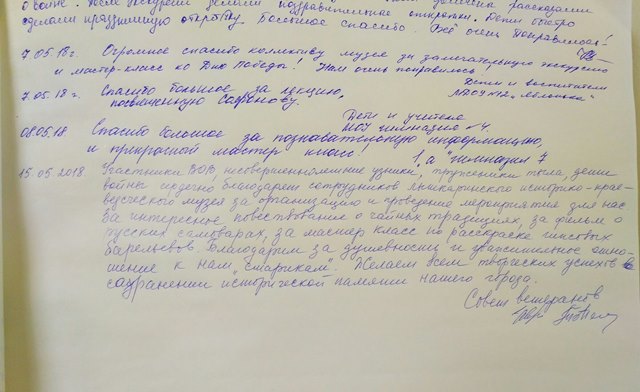 о войне. После экскурсии делали поздравительные открытки. Дети быстро
сделали праздничную открытку. Большое спасибо. Всё очень понравилось!
7.05.18г. Огромное спасибо коллективу музея за замечательную экскурсию
и мастер-класс ко Дню Победы! Нам очень понравилось
Дети и воспитатели
7.05.18г. Спасибо большое за лекцию,
посвященную Сафонову.
"Яблонька"
Дети и учителя
МОУ гимназия №4.
08.05.18 Спасибо большое за познавательную информацию,
и прекрасный мастер класс!
1 "а" гимназия 7
15.05.2018. Участники ВОВ, несовершеннолетние узники, труженики тыла, дети
войны сердечно благодарят сотрудников историко-крае-
ведческого музея за организацию и проведение мероприятия для нас
За интересное повествование о чайных традициях, за фильм о
русских самоварах, за мастер класс по раскраске гипсовых
барельефов. Благодарим за душевность и уважительное отно-
шение к нам "старикам". Желаем всем творческих успехов в
сохранении исторической памяти нашего города.
Совет ветеранов